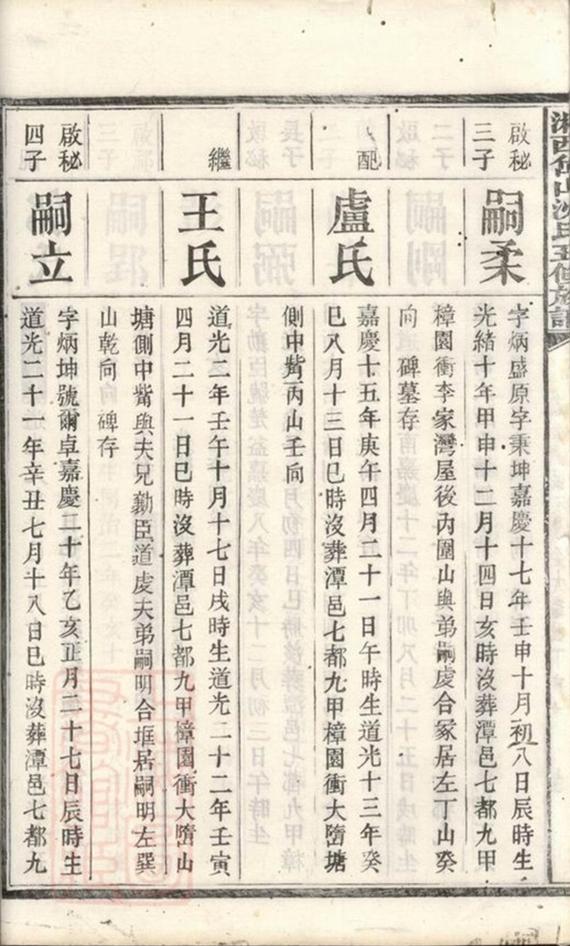 啟秘
三子
嗣柔
字炳盛原字秉坤嘉慶十七年壬申十月初八日辰時生
光緒十年甲申十二月十四日亥時沒葬潭邑七都九甲
樟園衝李家灣屋後內圍山與弟嗣虔合冢居左丁山癸
向 碑墓存
配
盧氏
嘉慶十五年庚午四月二十一日午時生道光十三年癸
巳八月十三日巳時沒葬潭邑七都九甲樟園衝大墮塘
側中觜丙山壬向
繼
王氏
道光二年壬午十月十七日戌時生道光二十二年壬寅
四月二十一日巳時沒葬潭邑七都九甲樟園衝大墮山
塘側中觜與夫兄勷臣道虔夫弟嗣明合堆居嗣明左巽
山乾向 碑存
啟秘
四子
嗣立
字炳坤號爾卓嘉慶二十年乙亥正月二十七日辰時生
道光二十一年辛丑七月十八日巳時沒葬潭邑七都九